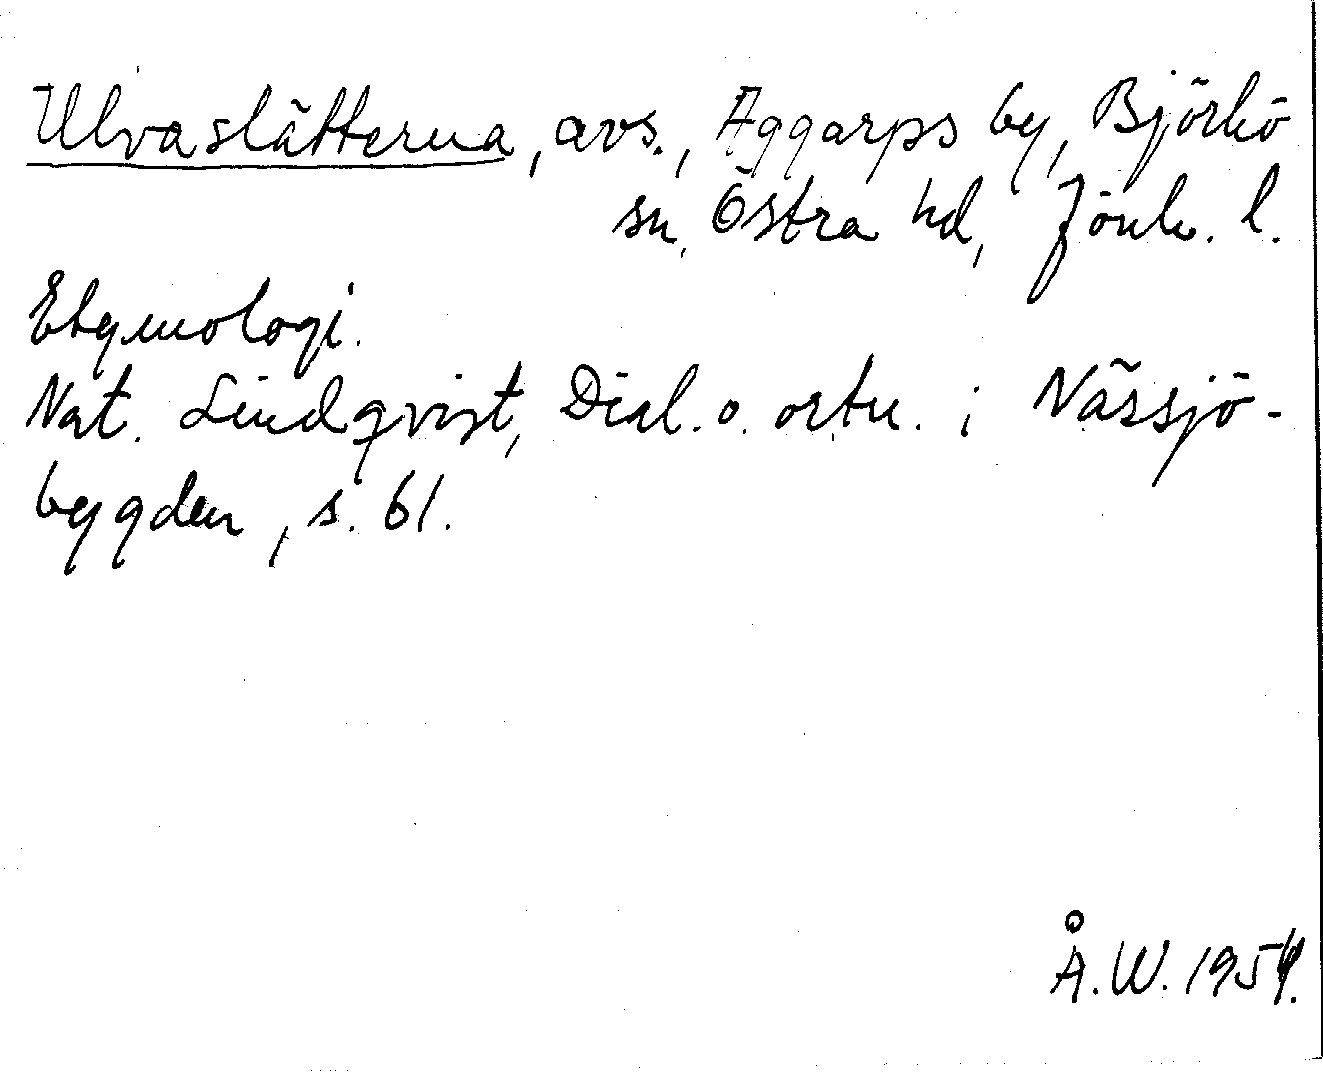 Ulvaslätterna, avs., Aggarps by, Björkö
sn, Östra hd, Jönk. l.
Etymologi.
Nat. Lindqvist, Dial. o. ortn. i Nässjö-
bygden, s. 61.
Å.W. 1954.